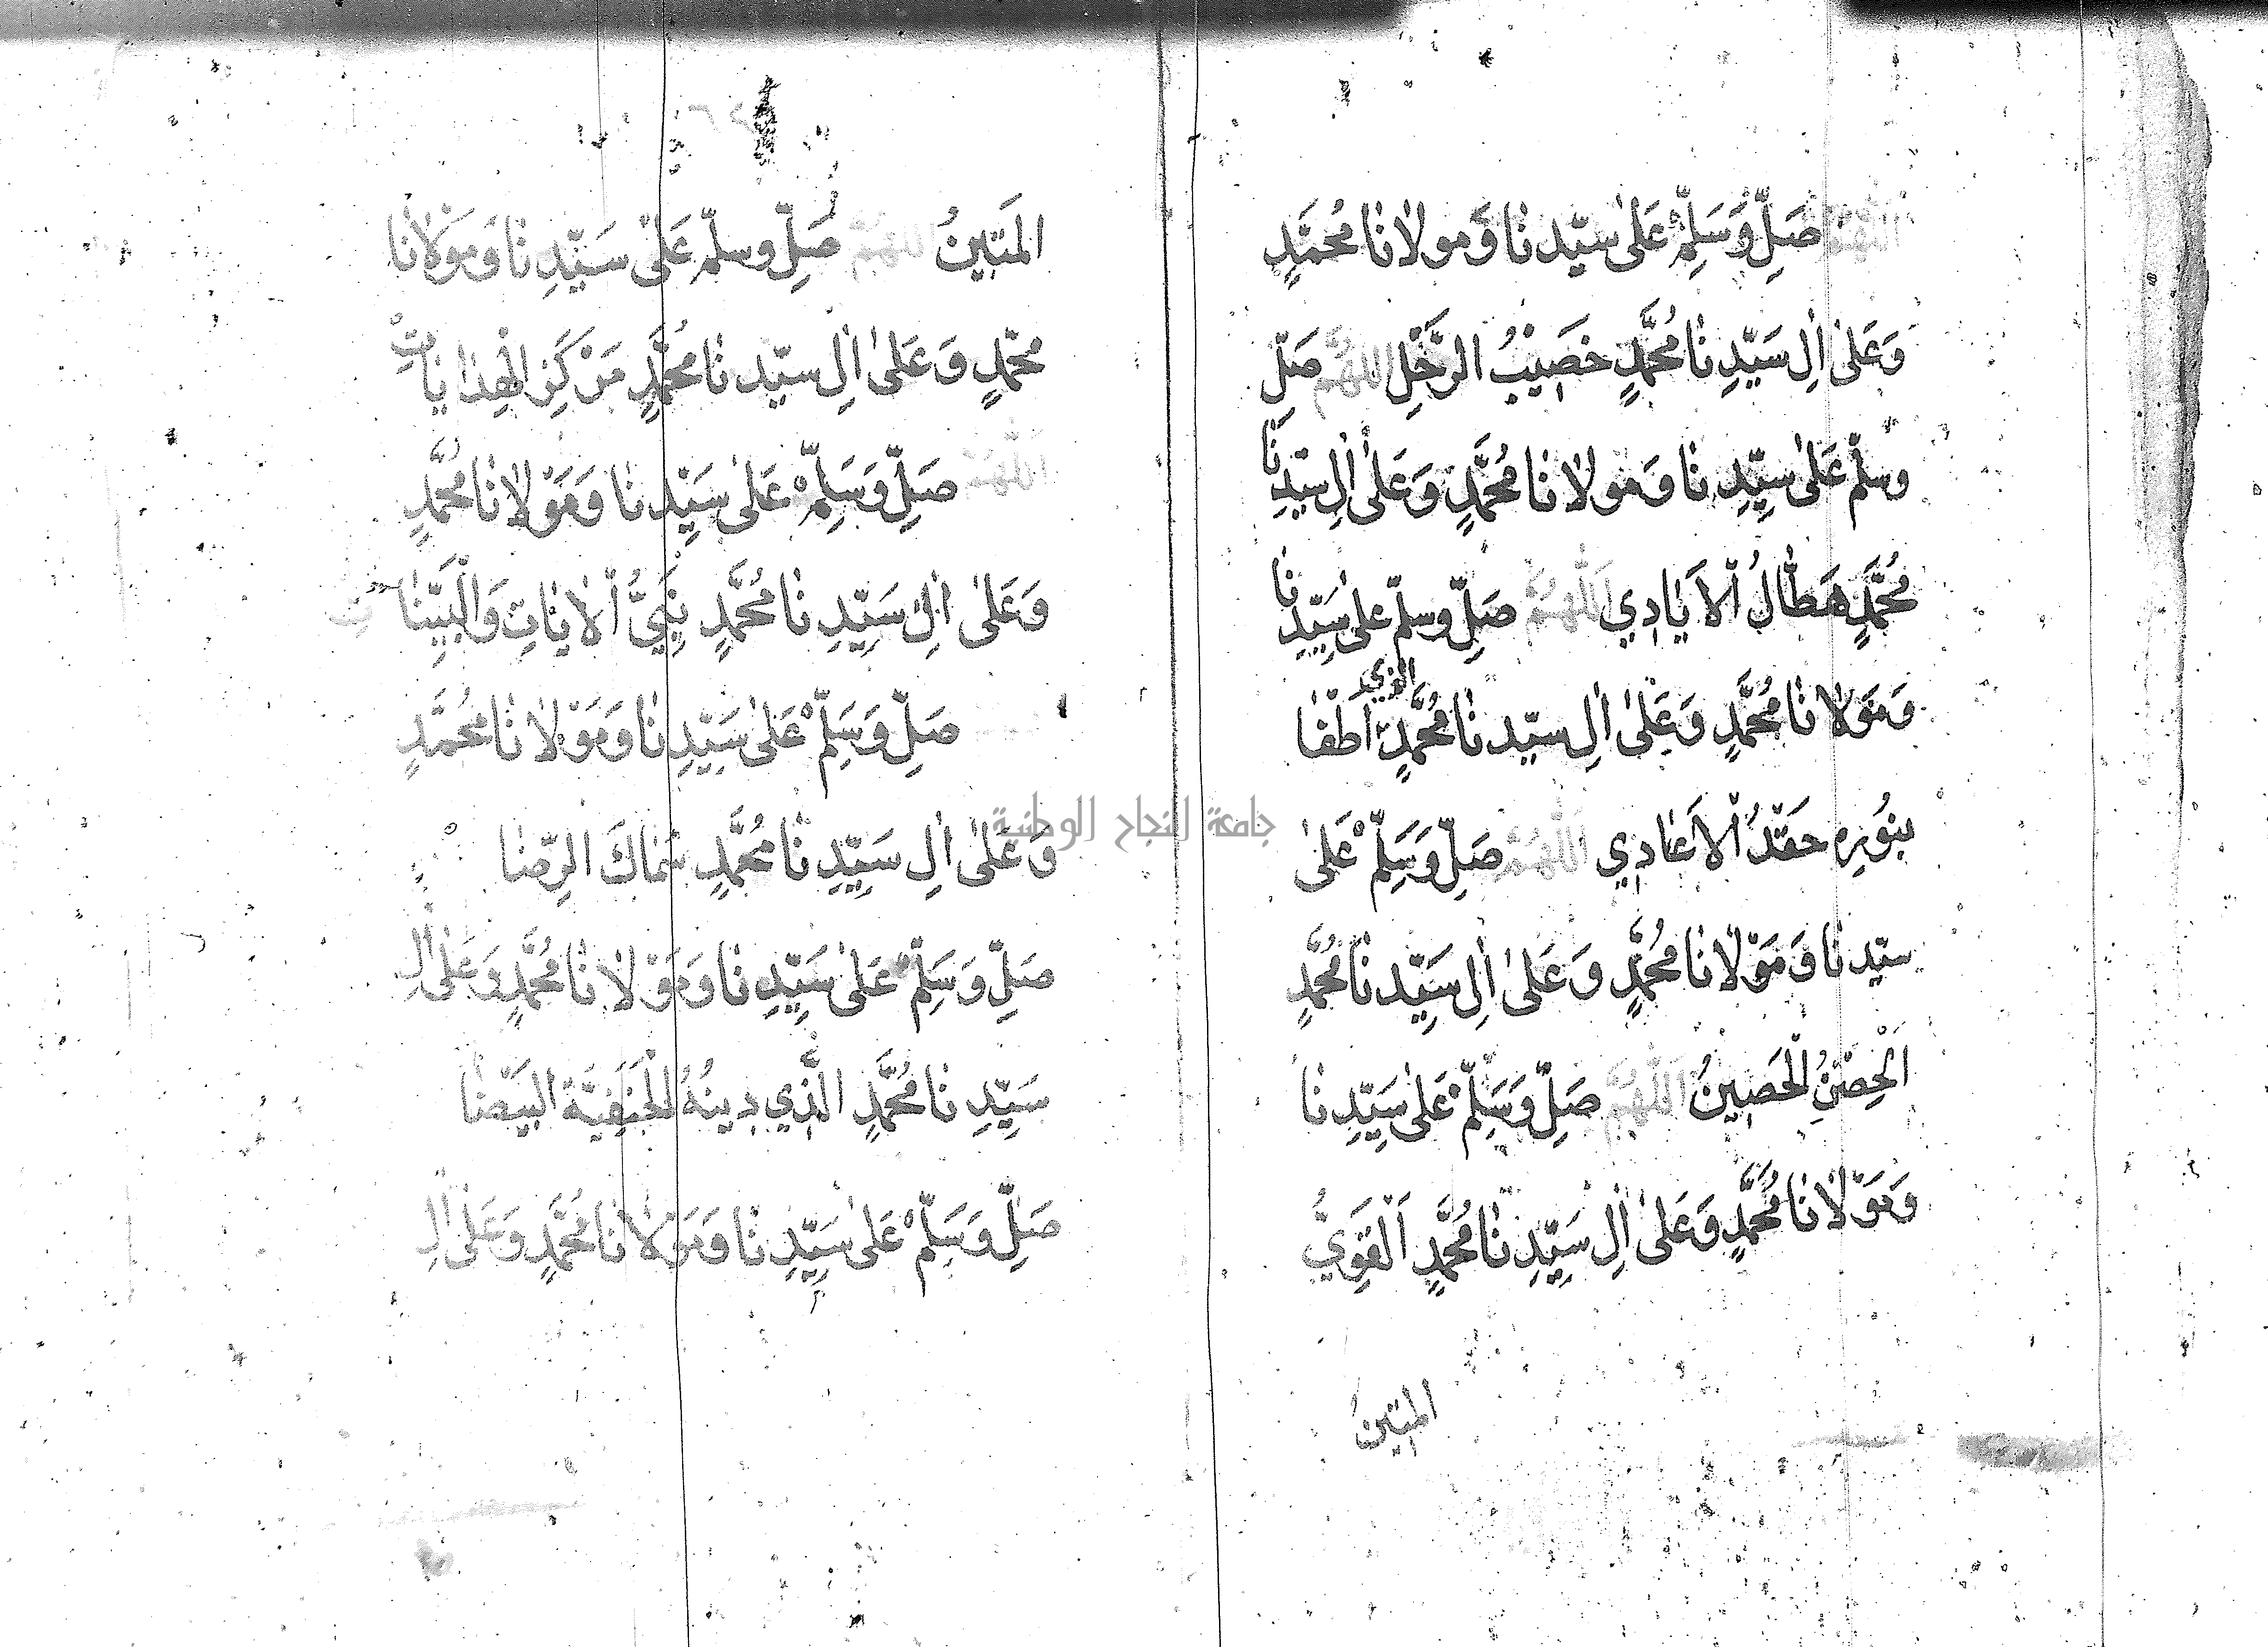 اللهم صَلِّ وَسَلِّمْ عَلىٰ سيّدنا وَمولانا مُحمَّدٍ
وَعَلىٰ اٰلِ سَيّدِنا مُحَمَّدٍ خَصِيْبُ الرَّحْلِ اللهم صَلّ
وسلّم عَلىٰ سيِّدِنا وَمَولانا مُحَمَّدٍ وَعَلىٰ اٰلِ سيّدِنا
مُحَمَّدٍ هَطَّالُ الْاَيَادِي اَللّٰهُمَّ صَلِّ وسلّم على سَيِّدِنا
وَمَوْلانا مُحَمَّدٍ وَعَلىٰ اٰلِ سيّدنا مُحَمَّدٍ الذي اَطْفَا
بنُورِهِ حَقْدُ الْاَعَادِي اَللّٰهُمَّ صَلِّ وَسَلِّمْ عَلىٰ
سيّدنا وَمَوْلانا مُحَمَّدٍ وَعَلىٰ اٰلِ سَيِّدنا مُحَمَّدٍ
اَلْحِصْنُ الْحَصِينُ اَللّٰهُمَّ صَلِّ وَسَلِّمْ عَلىٰ سَيِّدِنا
وَمَوْلانا مُحَمَّدٍ وَعَلىٰ اٰلِ سَيِّدِنا مُحَمَّدٍ اَلْقَوِيُّ
المتينُ
المَتينُ اللهم صَلِّ وسلّم عَلىٰ سَيّدِنا وَمَوْلانا
محمّدٍ وَعَلىٰ اٰلِ سيّدنا مُحَمَّدٍ مَرْكَزِ الْهِدَايَاتِ
اَللّٰهُمَّ صَلِّ وَسَلِّمْ عَلىٰ سَيِّدنا وَمَوْلانا مُحَمَّدٍ
وَعَلىٰ اٰلِ سَيِّدِنا مُحَمَّدٍ نَبِيُّ الْاٰيَاتِ وَالْبَيِّنَاتِ
صَلِّ وَسَلِّمْ عَلىٰ سَيِّدِنا وَمَوْلانا مُحَمَّدٍ
وَعَلىٰ اٰلِ سَيِّدِنا مُحَمَّدٍ سَمَاكَ الرِّضا
صَلِّ وَسَلِّمْ عَلىٰ سَيِّدِنا وَمَوْلانا مُحَمَّدٍ وَعَلىٰ اٰلِ
سَيِّدِنا مُحَمَّدٍ الَّذِي دِينُهُ الْحَنَفِيَّة البَيْضَا
صَلِّ وَسَلِّمْ عَلىٰ سَيِّدِنا وَمَوْلانا مُحَمَّدٍ وَعَلىٰ اٰلِ
جامعة النجاح الوطنية